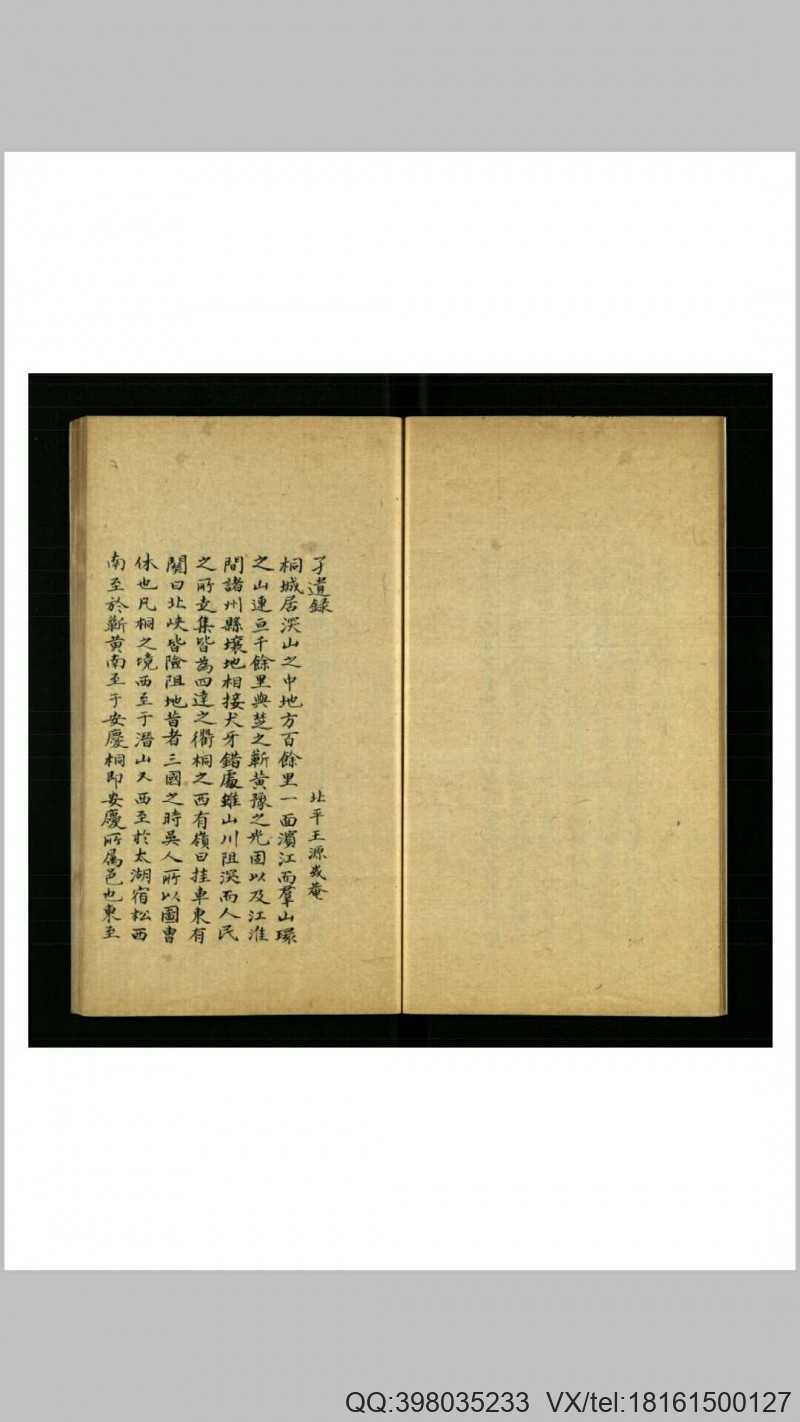 孑遺録
北平王源或菴
桐城居深山之中地方百餘里一面濱江而羣山環
之山連亘千餘里與楚之蘄黄豫之光固以及江淮
間諸州縣壤地相接犬牙錯處雖山川阻深而人民
之所走集皆為四達之衢桐之西有嶺曰挂車東有
關曰北峽皆險阻地昔者三國之時吳人所以圖曹
休也凡桐之境西至于潛山又西至於太湖宿松西
南至於蘄黄南至于安慶桐即安慶所属邑也東至
QQ:398035233 VX/tel:18161500127